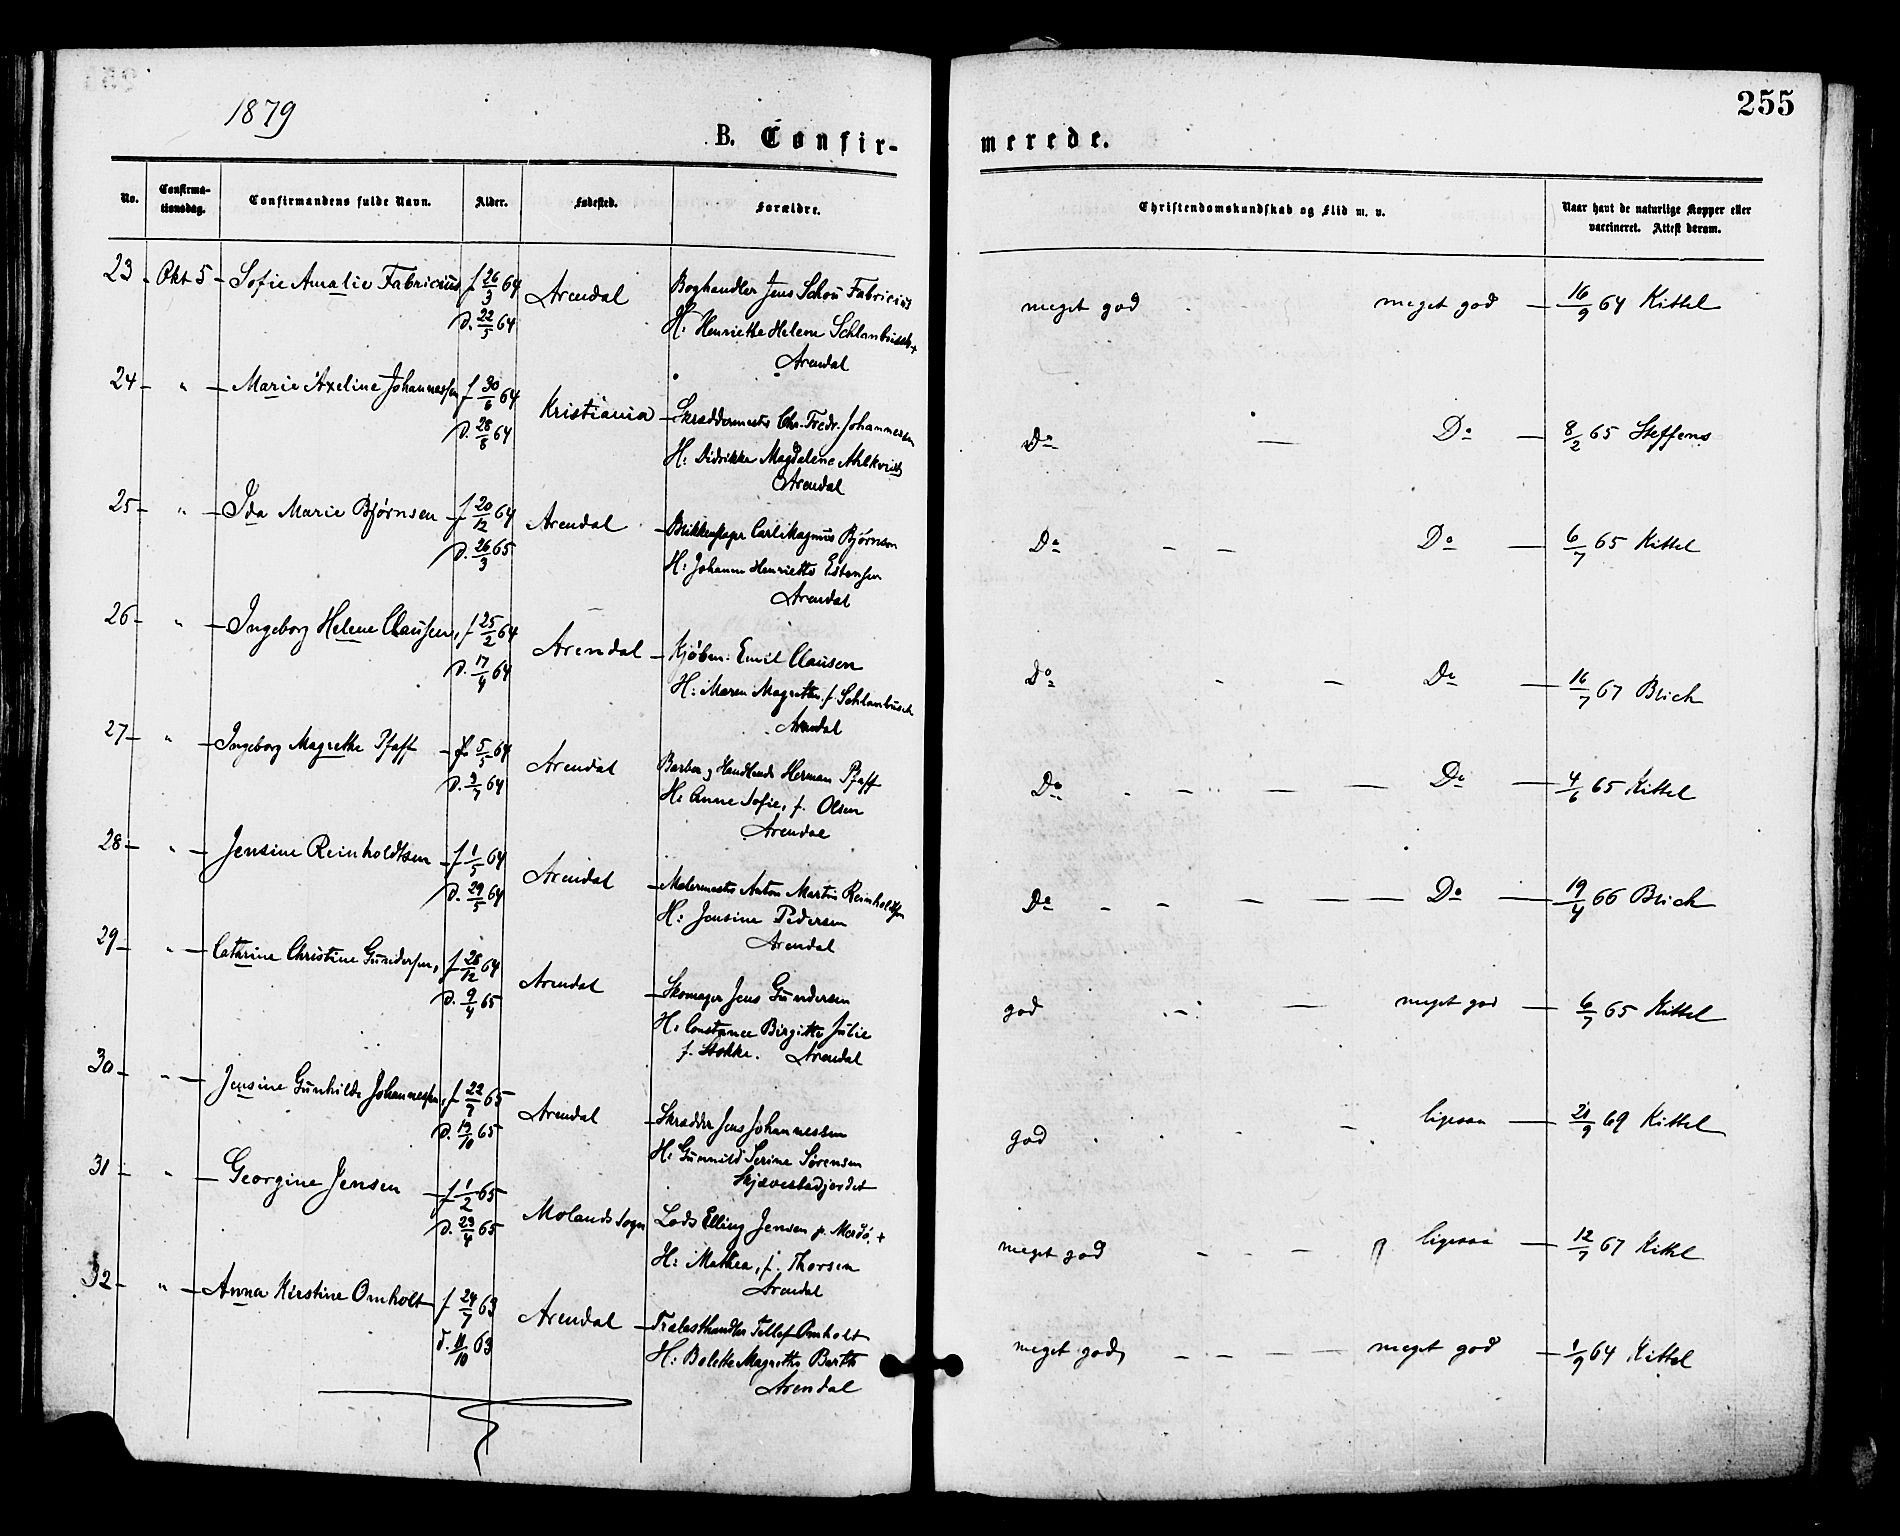 1879
255
B. Confir-
merede.
No.
Confirma-
tionsdag.
Confirmandens fulde Navn.
Alder.
Fødested.
Forældre.
Christendomskundskab og Flid m. v.
Naar havt de naturlige Kopper eller
vaccineret. Attest derom.
23 Okt 5 Sofie Amalie Fabricius f 26/3 64 Arendal Boghandler Jens Schou Fabricius meget god meget god 16/9 64 Kittel
d. 22/5 64 H: Henriette Helene Schlanbusch +
Arendal
24 " Marie Axeline Johannessen f 30/6 64 Kristiania Skræddermester Chr. Fredr. Johannessen Do Do 8/2 65 Steffens
d. 28/8 64 H: Didrikke Magdalene
Arendal
25 " Ida Marie Bjørnsen f 20/12 64 Arendal Blikkenslager Carl Magnus Bjørnsen Do Do 6/7 65 Kittel
d. 26/3 65 H: Johanne Henriette Estensen
Arendal
26 " Ingeborg Helene Clausen, f 25/2 64 Arendal Kjøbm: Emil Clausen Do Do 16/7 67 Blich
d. 17/4 64 H: Maren Magrethe, f. Schlanbusch
Arendal
27 " Ingeborg Magrethe Pfaff f. 5/5 64 Arendal Barber og Handlende Herman Pfaff Do Do 4/6 65 Kittel
d. 3/7 64 H: Anne Sofie, f. Olsen
Arendal
28 " Jensine Reinholdtsen f 1/5 64 Arendal Malermester Anton Martin Reinholdtsen Do Do 19/4 66 Blich
d. 29/5 64 H: Jensine Pedersen
Arendal
29 " Cathrine Christine Gundersen, f 28/12 64 Arendal Skomager Jens Gundersen god meget god 6/7 65 Kittel
d. 9/4 65 H: Constance Birgitte Julie
f. Stokke. Arendal
30 " Jensine Gunhilde Johannessen, f 22/7 65 Arendal Skrædder Jens Johannessen god ligesaa 21/9 69 Kittel
d. 19/10 65 H: Gunnild Serine Sørensen
31 " Georgine Jensen f 1/2 65 Molands Sogn Lods Elling Jensen p. Merdø, + meget god ligesaa 12/7 67 Kittel
d. 23/4 65 H: Mathea, f. Thorsen
Arendal
32 " Anna Kirstine Omholt f 24/7 63 Arendal Trælasthandler Tellef Omholt meget god meget god 1/9 64 Kittel
d. 11/10 63 H: Bolette Magrethe Barth
Arendal